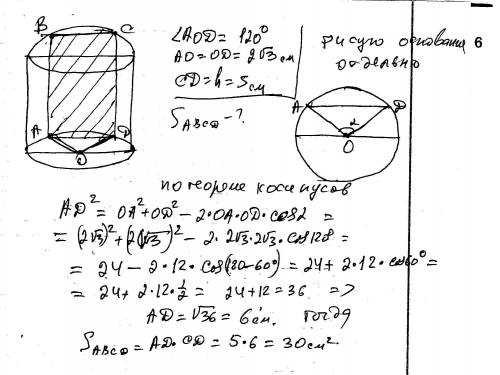 B C
∠AOD = 120°
AO = OD = 2√3 см
CD = h = 5 см
S ABCD - ?
рисую основания 6
отдельно
A D
O
A D
α
O
по теореме косинусов
AD² = OA² + OD² - 2·OA·OD·cosα =
= (2√3)² + (2√3)² - 2·2√3·2√3·cos120 =
= 24 - 2·12·cos(180-60°) = 24 + 2·12·cos60° =
= 24 + 2·12·½ = 24 + 12 = 36 =>
AD = √36 = 6 см. тогда
S ABCD = AD·CD = 5·6 = 30 см²